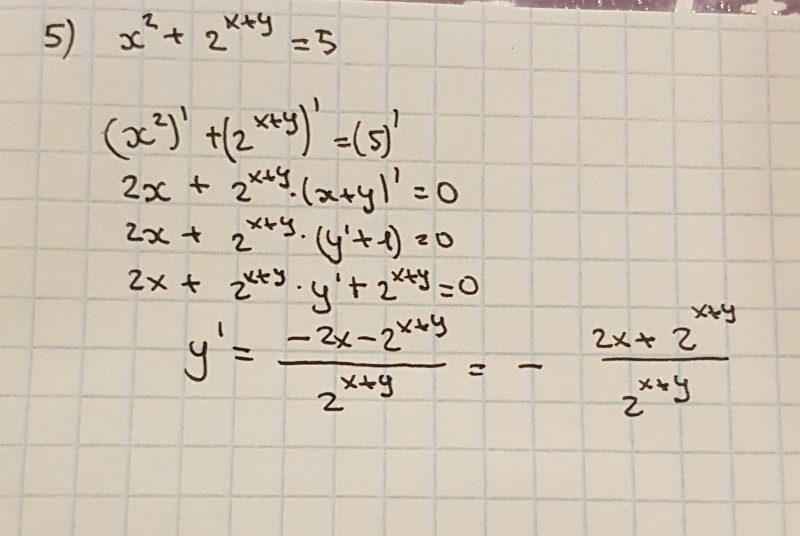 5) x² + 2^(x+y) = 5
(x²)' + (2^(x+y))' = (5)'
2x + 2^(x+y) · (x+y)' = 0
2x + 2^(x+y) · (y'+1) = 0
2x + 2^(x+y) · y' + 2^(x+y) = 0
y' = (-2x - 2^(x+y)) / 2^(x+y) = - (2x + 2^(x+y)) / 2^(x+y)